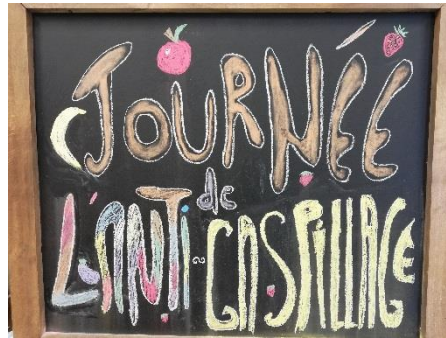 JOURNÉE
de
L'ANTI-GASPILLAGE